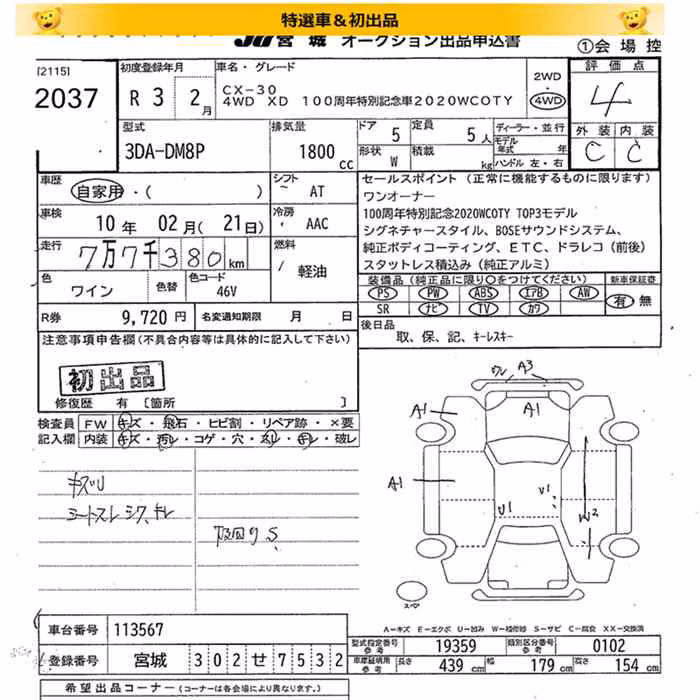 特選車&初出品
JU 宮城 オークション出品申込書
①会場控
[2115]
2037
初度登録年月
R 3 2月
車名・グレード
CX-30
4WD XD 100周年特別記念車2020WCOTY
2WD
・
4WD
評価点
4
外装 内装
C C
型式
3DA-DM8P
排気量
1800 cc
ドア 5
定員 5人
形状 W
積載 kg
ディーラー・並行
モデル年式 年
ハンドル 左・右
車歴
自家用・( )
シフト AT
車検
10年 02月(21日)
冷房 AAC
走行
7万7千380km
燃料
軽油
色
ワイン
色替
色コード
46V
R券 9,720円
名変通知期限 月 日
セールスポイント (正常に機能するものに限ります)
ワンオーナー
100周年特別記念2020WCOTY TOP3モデル
シグネチャースタイル、BOSEサウンドシステム、
純正ボディコーティング、ETC、ドラレコ(前後)
スタットレス積込み(純正アルミ)
装備品(純正品に限り○をつけてください)
新車保証書
PS PW ABS エアB AW
SR ナビ TV カワ
有・無
後日品
取、保、記、キーレスキー
注意事項申告欄(不具合内容等は具体的に記入して下さい)
初出品
修復歴 有 [箇所 ]
検査員記入欄
FW キズ・飛石・ヒビ割・リペア跡・×要
内装 キズ・汚レ・コゲ・穴・スレ・キレ・破レ
キズU
シートスレ シワ、キレ
下回りS
ワレ A3
A1
A1
A1
U1
U1
W2
スペア
A−キズ E−エクボ U−凹み W−補修跡 S−サビ C−腐食 XX−交換済
車台番号 113567
登録番号 宮城 302せ7532
型式指定番号 参考 19359
類別区分番号 参考 0102
車庫証明用 参考 長さ 439 cm 幅 179 cm 高さ 154 cm
希望出品コーナー(コーナーは各会場により異なります。)